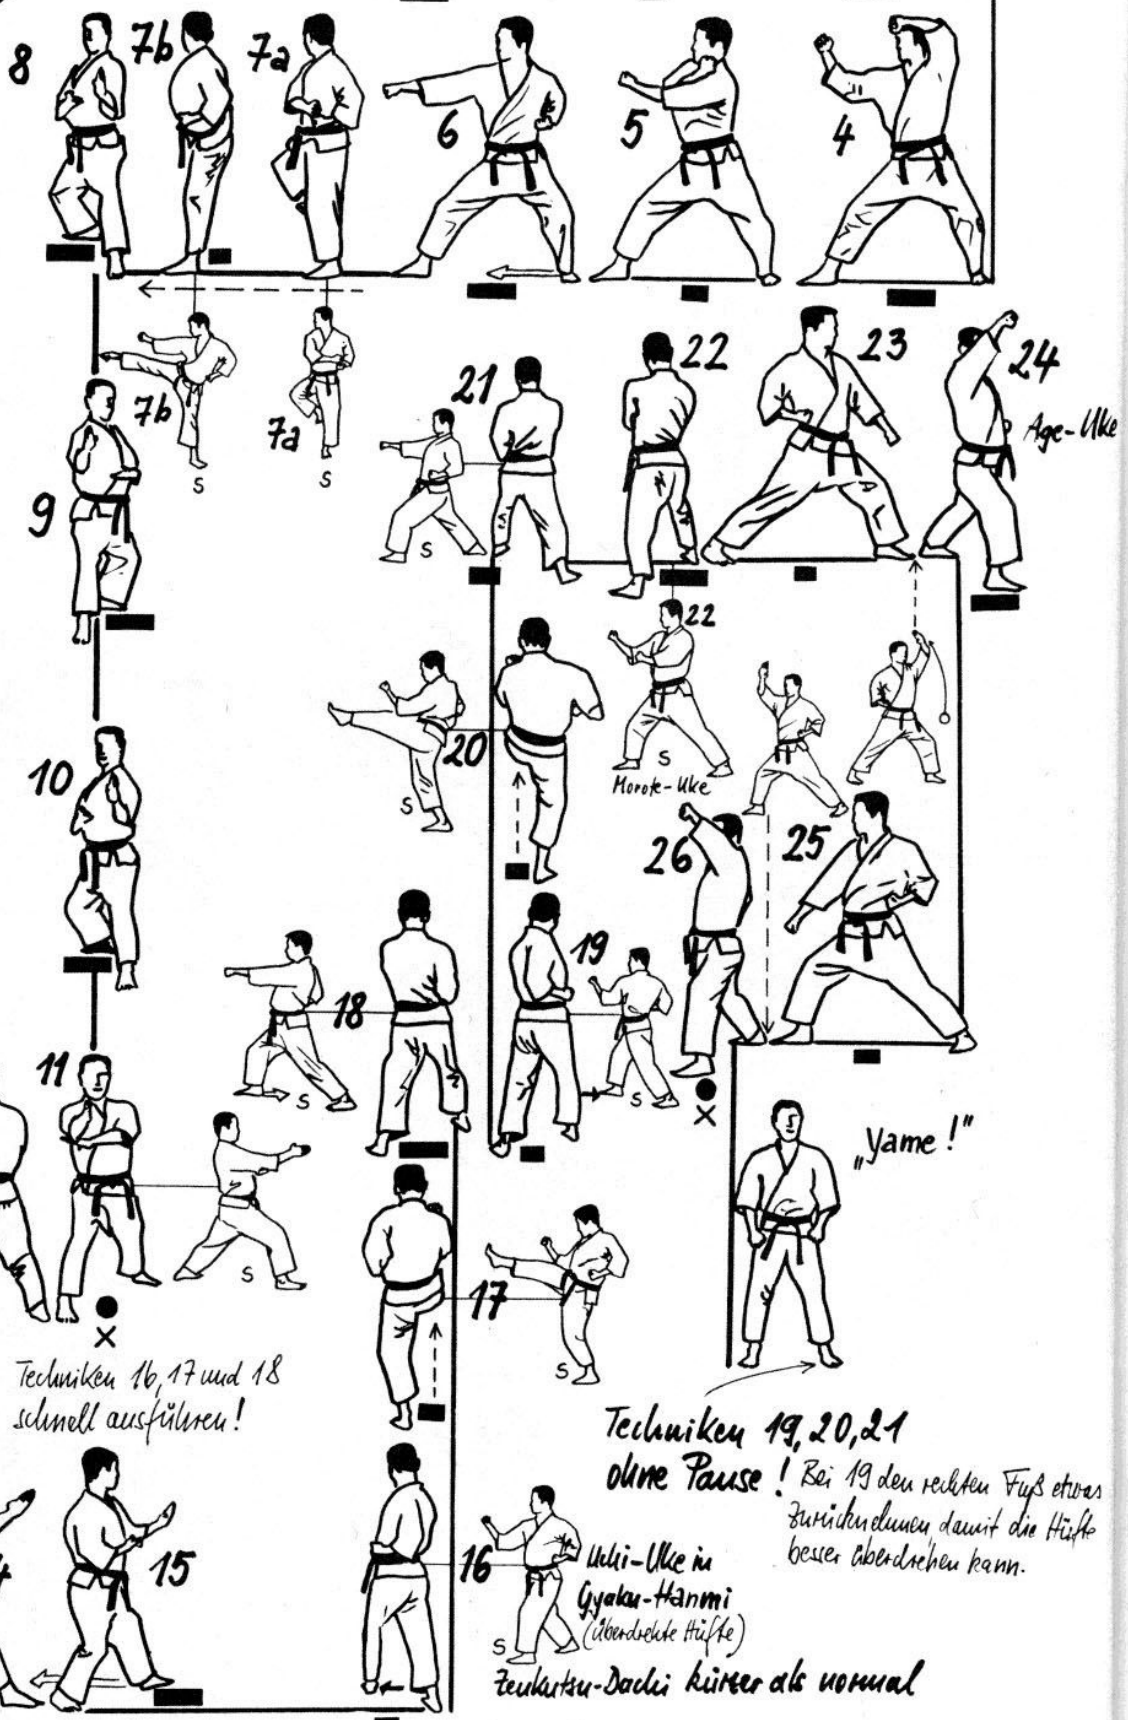 8
7b
7a
6
5
4
7b
S
7a
S
21
S
22
23
24
Age-Uke
9
22
S
Morote-Uke
20
S
10
26
25
18
S
19
S
11
S
"Yame!"
17
S
Techniken 16, 17 und 18
schnell ausführen!
Techniken 19, 20, 21
ohne Pause! Bei 19 den rechten Fuß etwas
zurücknehmen, damit die Hüfte
besser überdrehen kann.
15
16
S
Uchi-Uke in
Gyaku-Hanmi
(überdrehte Hüfte)
Zenkutsu-Dachi kürzer als normal